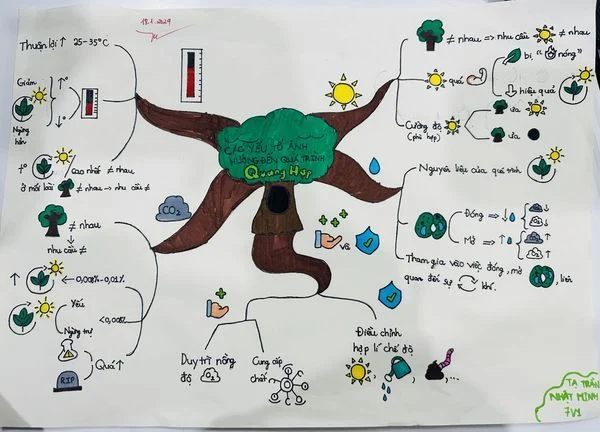 18.1.2024
CÁC YẾU TỐ ẢNH
HƯỞNG ĐẾN QUÁ TRÌNH
Quang Hợp
Thuận lợi ↑ 25-35°C
Giảm
Ngừng
hẳn
↑°
↓°
↑° / Cao nhất ≠ nhau
ở mỗi loài ≠ nhau → nhu cầu ≠
≠ nhau
nhu cầu ≠
CO2
↑ ← 0,008% - 0,01%
Yếu
Ngừng trệ
<0,008%
Quá ↑
RIP
≠ nhau => nhu cầu ≠ nhau
quá
bị " nóng"
hiệu quả
Cường độ
(phù hợp)
ưa
ưa
Nguyên liệu của quá trình
Đóng → ↓
CO2 ↓
O2 ↓
Mở → ↑
CO2 ↑
O2 ↑
Tham gia vào việc đóng, mở , liên
quan đến sự khí.
và
Duy trì nồng
độ O2
Cung cấp
chất
Điều chỉnh
hợp lí chế độ
, , ,...
TẠ TRẦN
NHẬT MINH
7V1